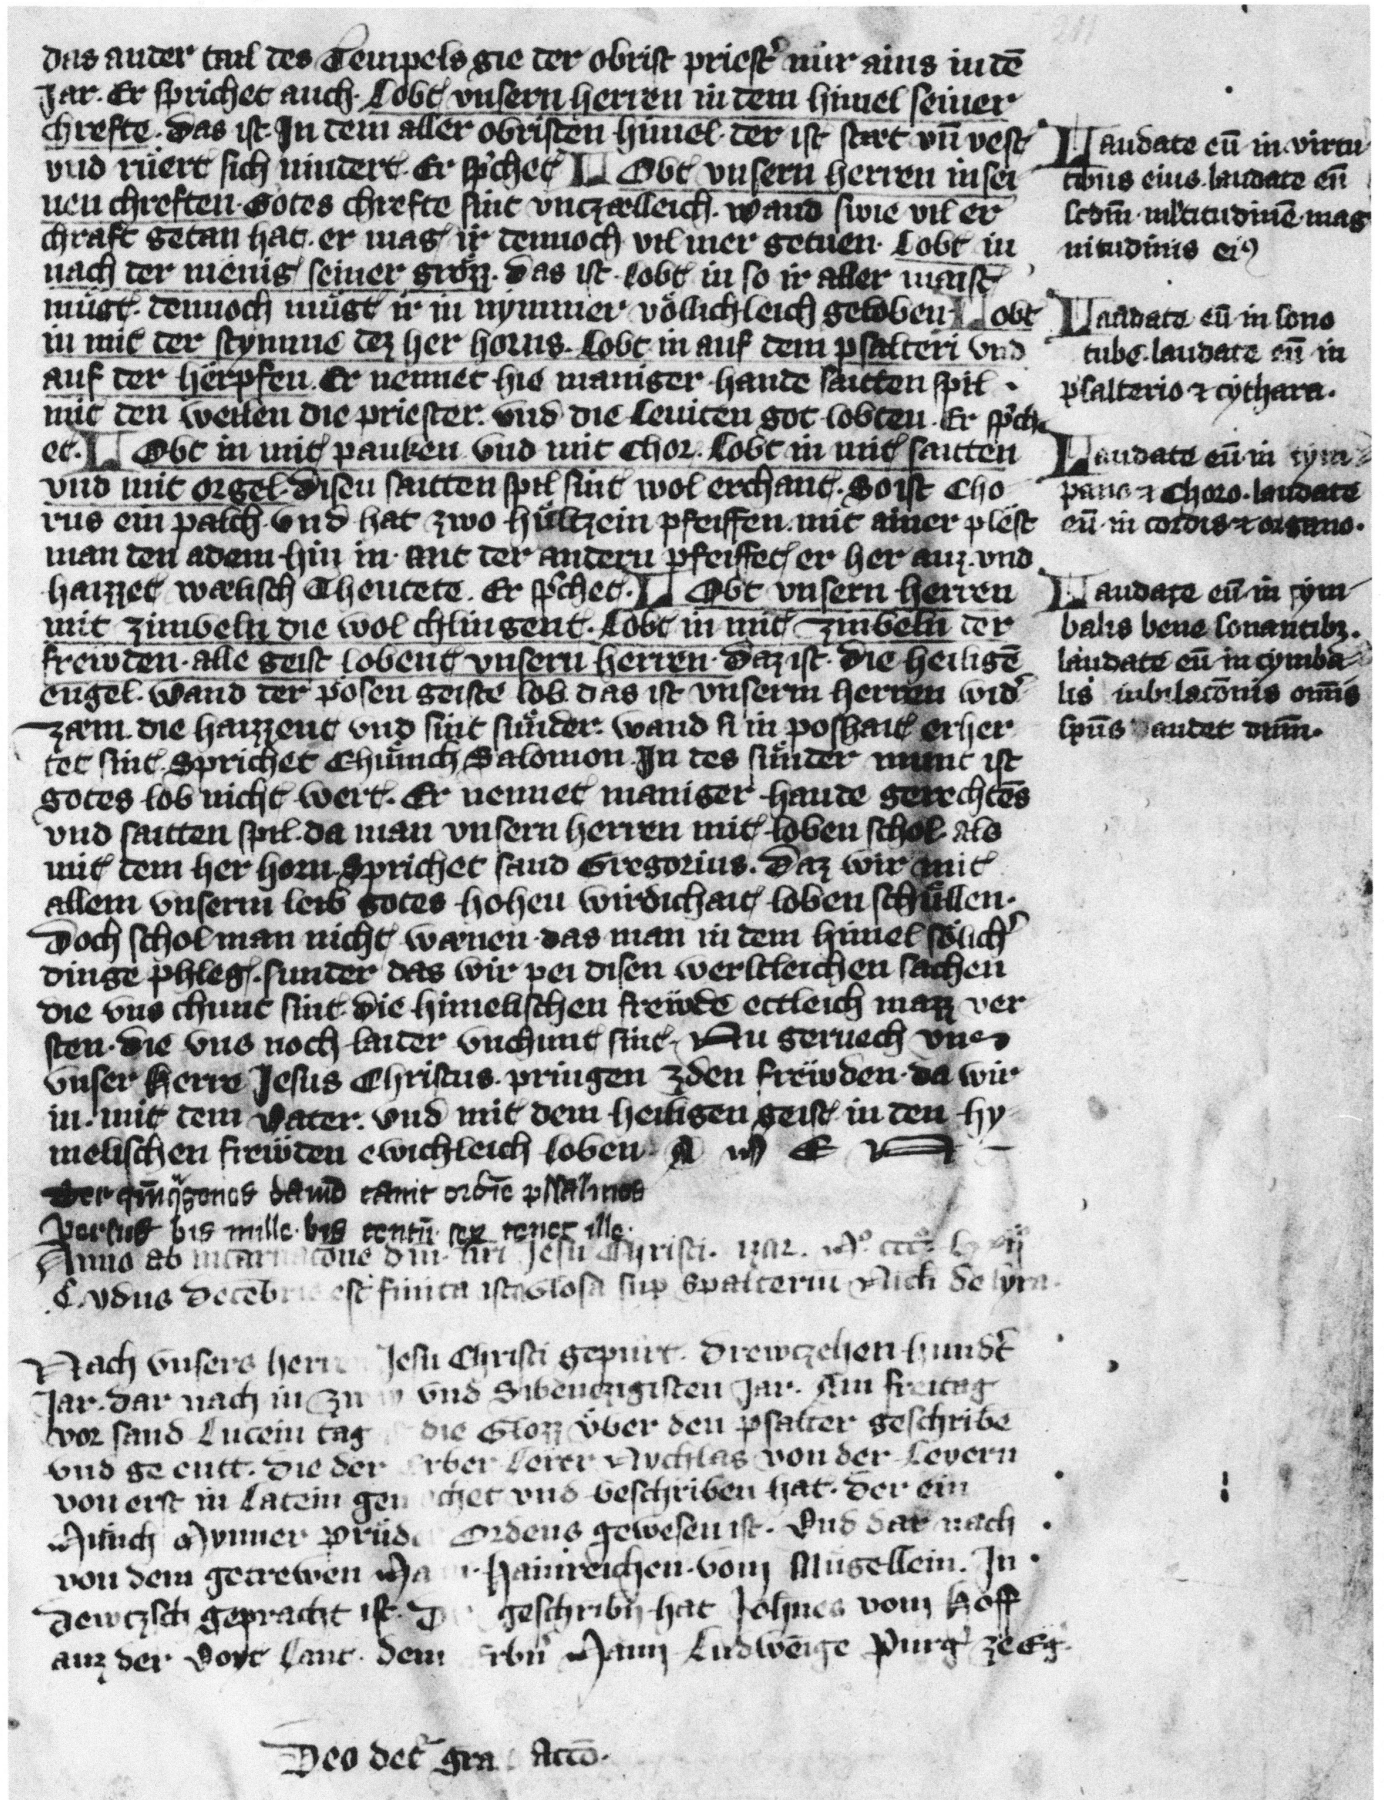 das ander tail des Tempels gie der obrist priest' nur ains in dē
Jar. Er sprichet auch. Lobt vnsern herren in dem himel seiner
chrefte. das ist In dem aller obristen himel. der ist start vn̄ vest
vnd rüert sich nindert. Er sp'chet LObt vnsern herren in sei
nen chreften. Gotes chrefte sint vnczælleich. wand swie vil er
chraft getan hat. er mag ir dennoch vil mer getuen. Lobt in
nach der menig seiner grözz. das ist. lobt in so ir aller maist
mügt. dennoch mügt ir in nymmer völlichleich geloben Lobt
in mit der stymme dez her horns. Lobt in auf dem psalteri vnd
auf der herpfen. Er nennet hie maniger hande saitten spil.
mit den weilen die priester. vnd die leuiten got lobten. Er sp'ch
et. LObt in mit pauken vnd mit Chor. Lobt in mit saitten
vnd mit orgel. disen saitten spil sint wol erchant. So ist Cho
rus ein palch. vnd hat zwo hültzein pfeiffen. mit ainer plest
man den adem hin in. mit der andern pfeiffet er her auz. vnd
haizzet wælisch Theutete. Er sp'chet. LObt vnsern herren
mit zimbeln die wol chlingent. Lobt in mit zimbeln der
frewden. alle geist lobent vnsern herren. daz ist. die heiligē
engel. wand der posen geiste lob das ist vnserm herren wid'
zæm. die haizzent vnd sint sünder. wand si in poshait erher
tet sint. Sprichet Chünich Salomon. In des sünder munt ist
gotes lob nicht wert. Er nennet maniger hande gerechtēs
vnd saitten spil. da man vnsern herren mit loben schol. als
mit dem her horn. Sprichet sand Gregorius. Daz wir mit
allem vnserm leib gotes hohen wirdichait loben schüllen.
Doch schol man nicht wænen das man in dem himel sölich'
dinge phleg. sunder das wir pei disen werltleichen sachen
die vns chunt sint. die himelischen frewde ettleich mazz ver
sten. die vns noch laider vnchunt sint. Nu geruech vns
vnser Herre Jesus Christus. pringen zden frewden. da wir
in. mit dem Vater. vnd mit dem heiligen geist in den hy
melischen frewden ewichleich loben A M E N
Ter q̄nq̄genos dauid canit ordīe psalmos
Versus bis mille bis centū sex canit ille.
Anno ab incarnacōne dni nri Jesu Christi.
ydus Decēbris est finita ista Glosa sup Spalterm Nich de lyra.
Nach vnsers herren Jesu Christi gepurt. Drewczehen hundt
Jar. dar nach in vnd Sibenczigisten Jar. Am freitag
vor sand Lucein tag die Glozz vber den psalter geschribē
vnd ge entt. Die der Erber Lerer Nychlas von der Leyern
von erst in Latein gemachet vnd beschriben hat. der ein
Münch Mynner Prüder Ordens gewesen ist. Vnd dar nach
von dem getrewen Hainreichen vom Mügellein. In
dewtzsch gepracht ist. geschribn hat Johnes vom Hoff
auz der Voyt Lant. dem Erbn Mann Ludweige Purg' ze Eg'.
Deo det' gra Actō.
Laudate eū in virtu
tibus eius. laudate eū
scdm m'ltitudinē mag
nitudinis ei9
Laudate eū in sono
tube. laudate eū in
psalterio & cythara.
Laudate eū in tym
pano & Choro. laudate
eū in cordis & organo.
Laudate eū in cym
balis bene sonantibz.
laudate eū in cymba
lis iubilacōnis omīs
spūs laudet dnm.